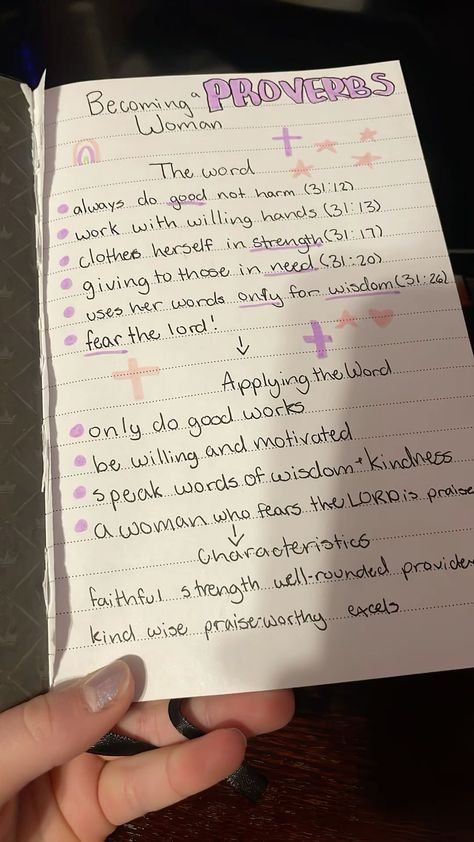 Becoming a PROVERBS
Woman
The word
always do good not harm (31:12)
work with willing hands (31:13)
clothes herself in strength (31:17)
giving to those in need (31:20)
uses her words only for wisdom (31:26)
fear the lord!
Applying the Word
only do good works
be willing and motivated
speak words of wisdom + kindness
a woman who fears the LORD is praise
characteristics
faithful strength well-rounded provider
kind wise praise-worthy excels